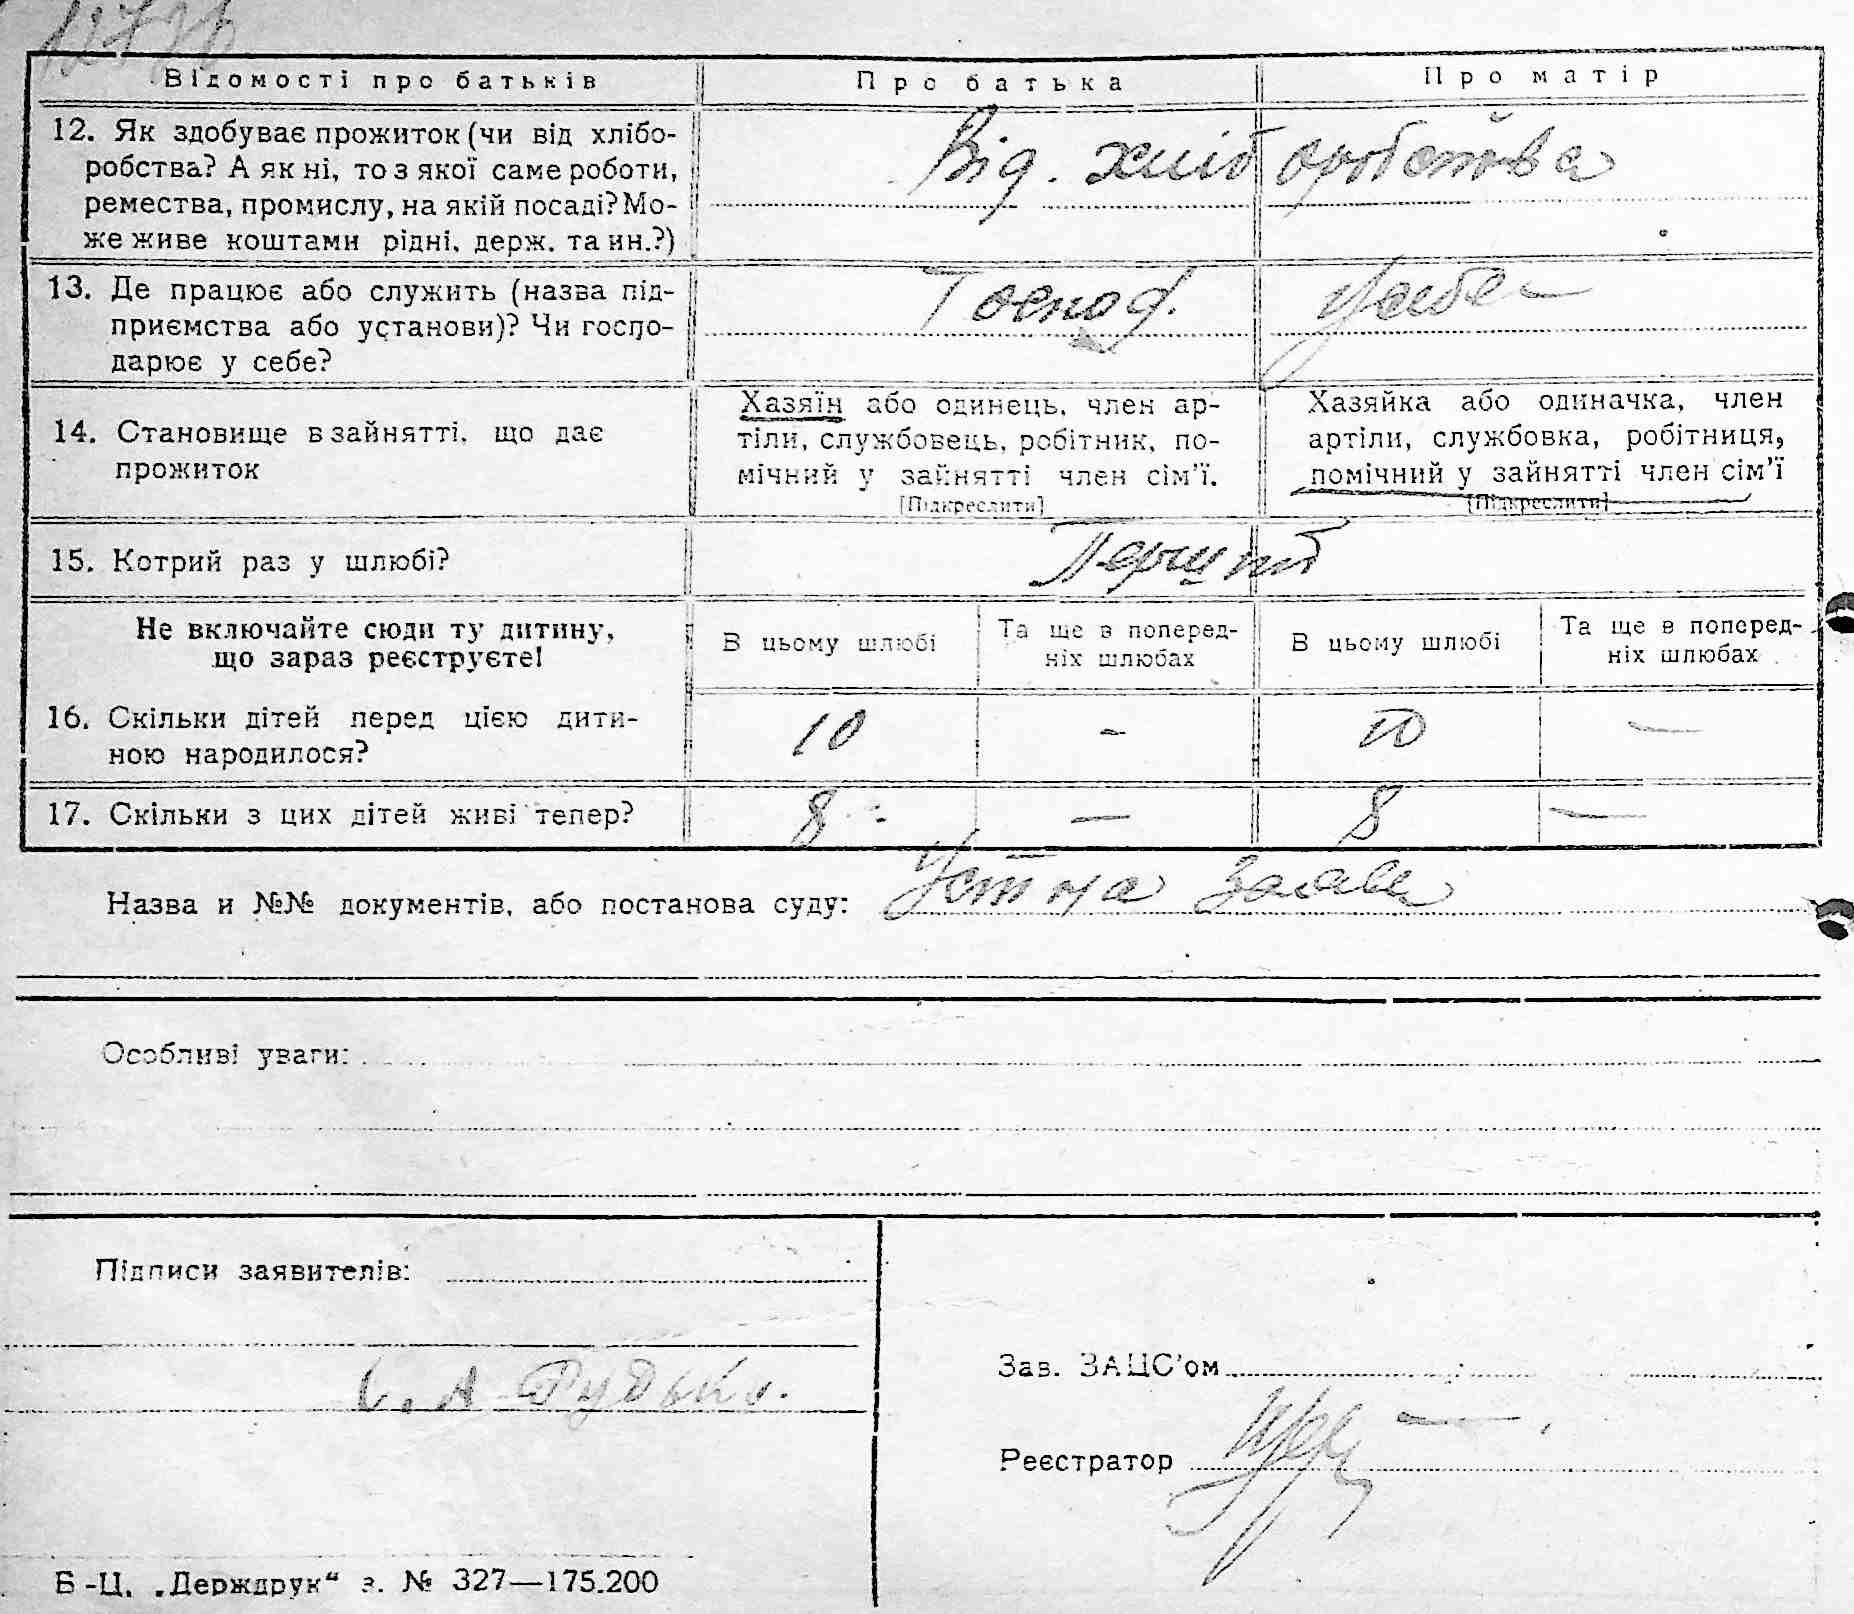 Відомості про батьків Про батька Про матір
12. Як здобуває прожиток (чи від хлібо-
робства? А як ні, то з якої саме роботи,
ремества, промислу, на якій посаді? Мо-
же живе коштами рідні, держ. та ин.?)
Від. хліб оробства
13. Де працює або служить (назва під-
приємства або установи)? Чи госпо-
дарює у себе?
Господ. у себе
14. Становище в зайнятті, що дає
прожиток
Хазяїн або одинець, член ар-
тіли, службовець, робітник, по-
мічний у зайнятті член сім'ї.
[Підкреслити]
Хазяйка або одиначка, член
артіли, службовка, робітниця,
помічний у зайнятті член сім'ї
[Підкреслити]
15. Котрий раз у шлюбі?
Перший
Не включайте сюди ту дитину,
що зараз реєструєте!
В цьому шлюбі
Та ще в поперед-
ніх шлюбах
В цьому шлюбі
Та ще в поперед-
ніх шлюбах
16. Скільки дітей перед цією дити-
ною народилося?
10 - 10 —
17. Скільки з цих дітей живі тепер?
8 — 8 —
Назва и №№ документів, або постанова суду: Устна заява
Особливі уваги:
Підписи заявителів:
Рудько.
Зав. ЗАЦС'ом
Реєстратор
Б-Ц. „Держдрук“ з. № 327—175.200